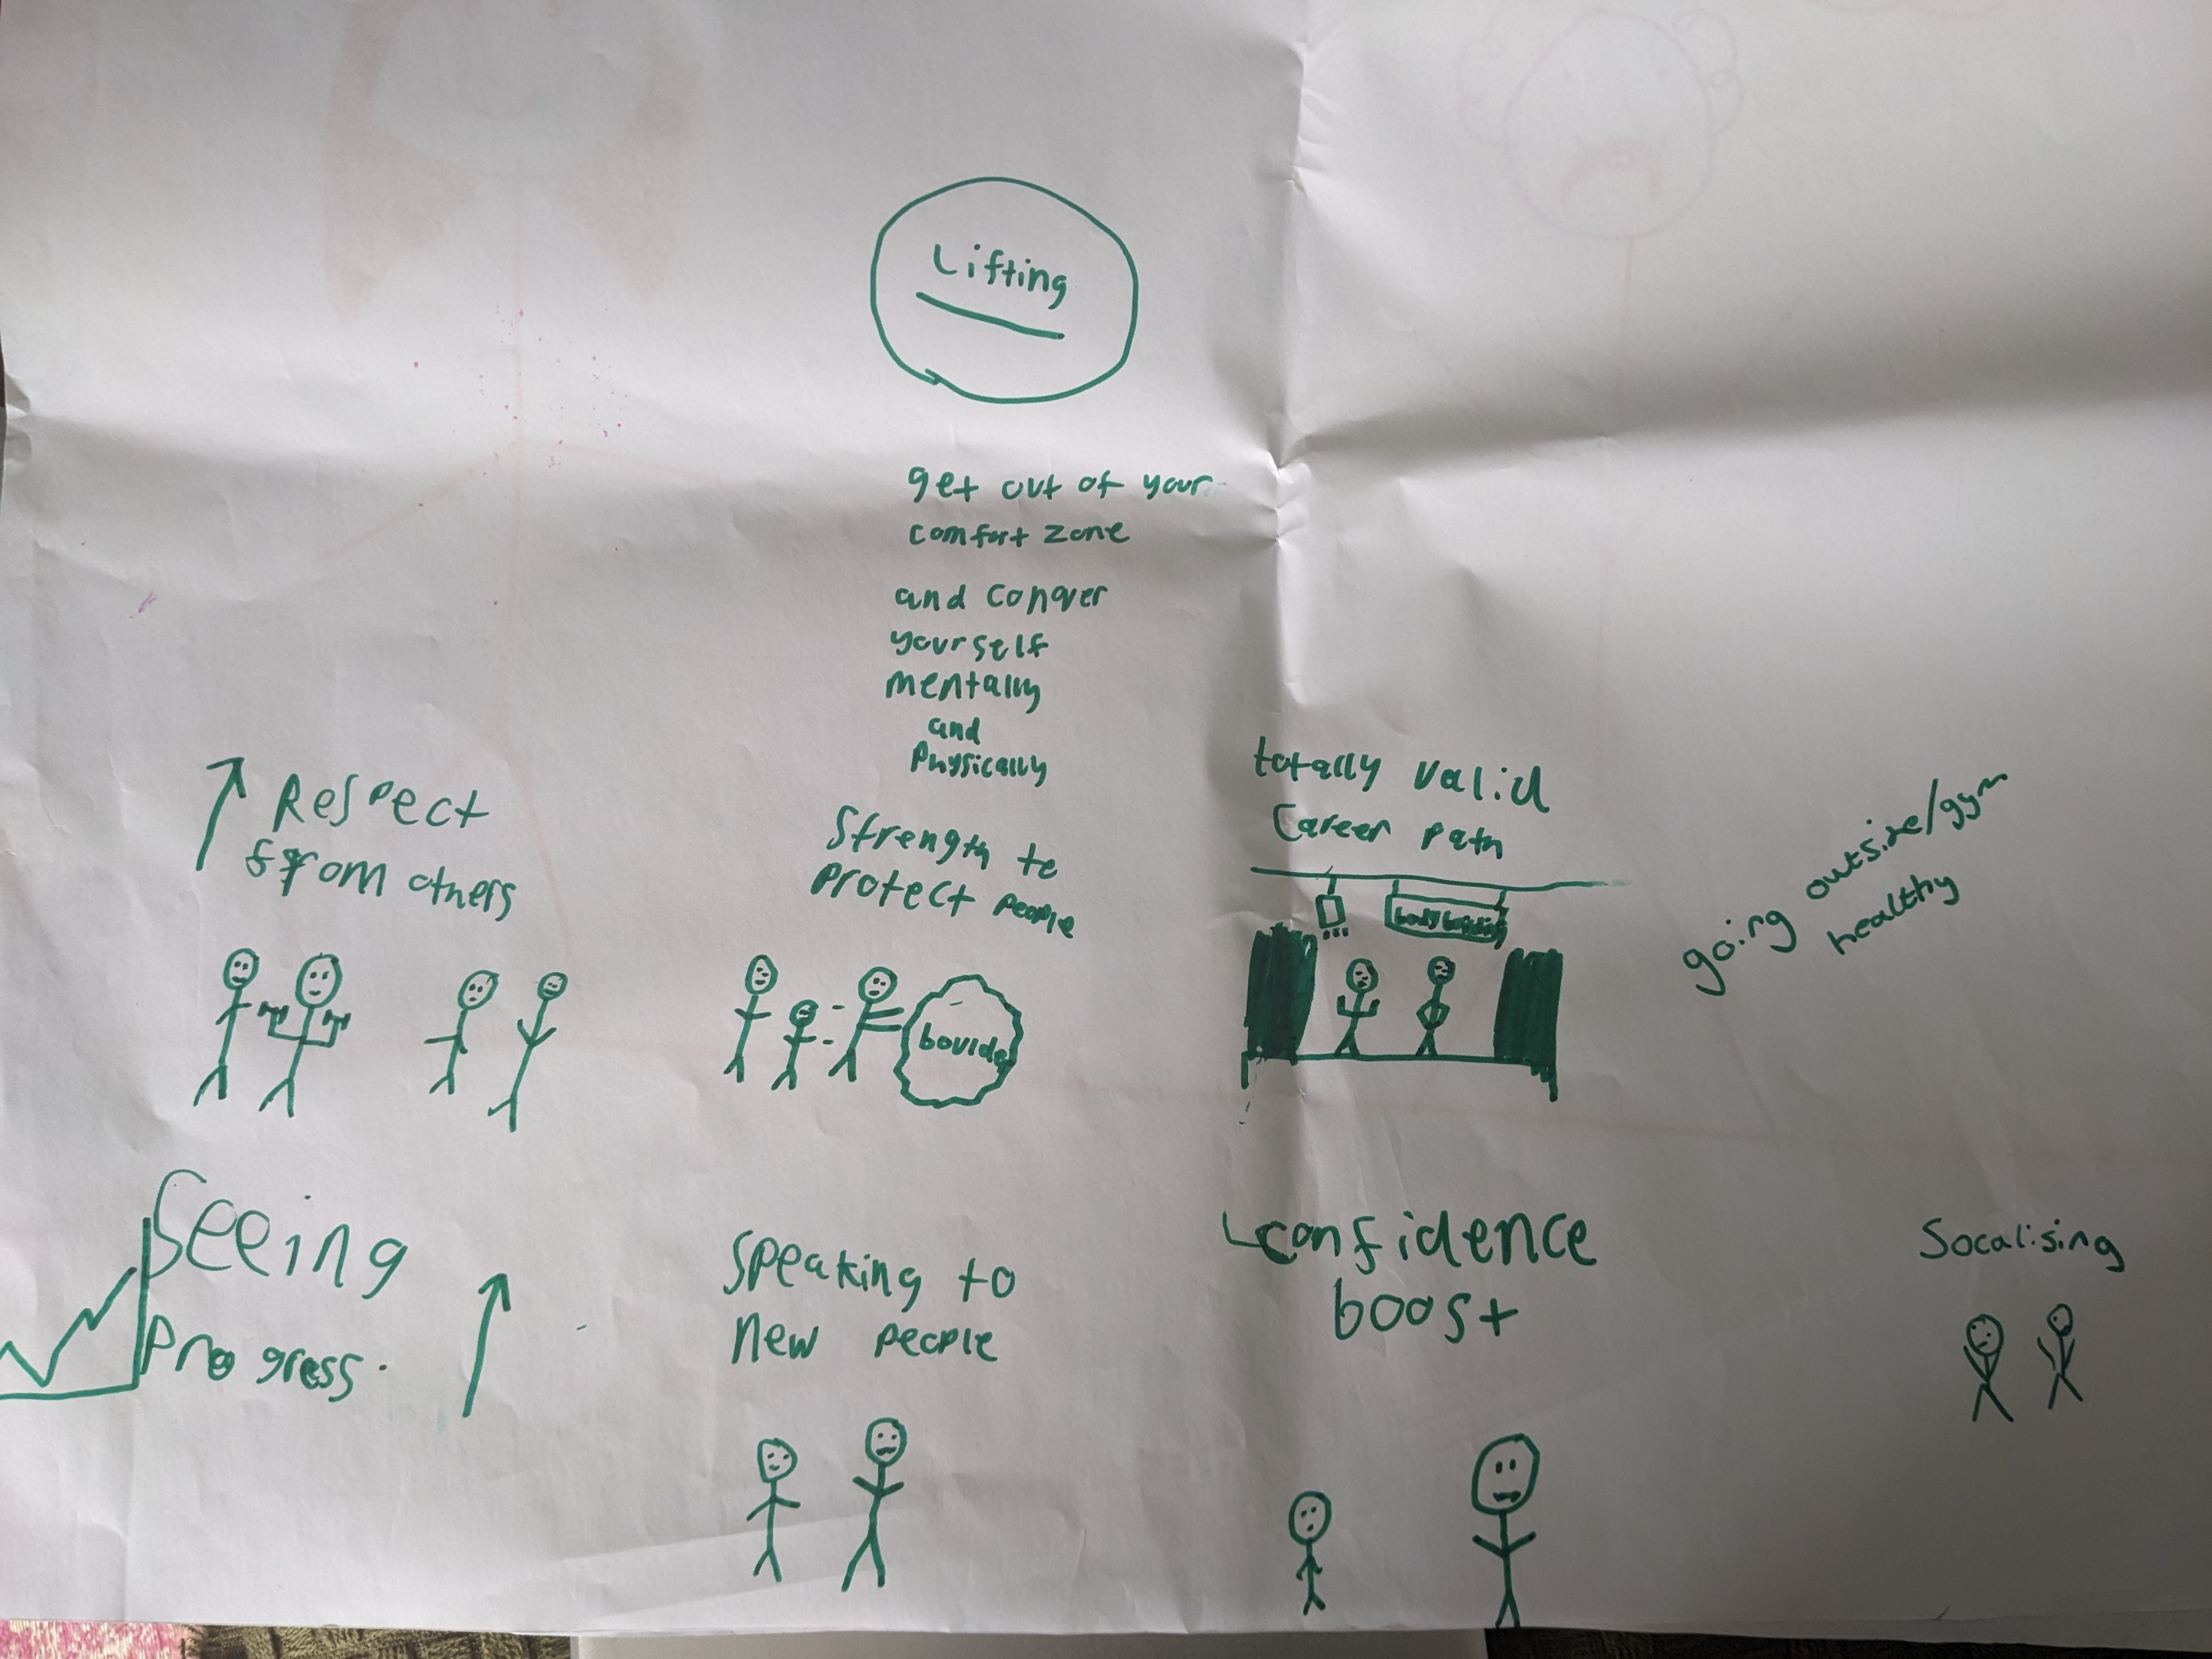 Lifting
get out of your
comfort zone
and conquer
yourself
mentally
and
Physically
Respect
from others
Strength to
Protect people
totally valid
Career path
body building
going outside/gym
healthy
Seeing
Progress.
Speaking to
New people
confidence
boost
Socalising